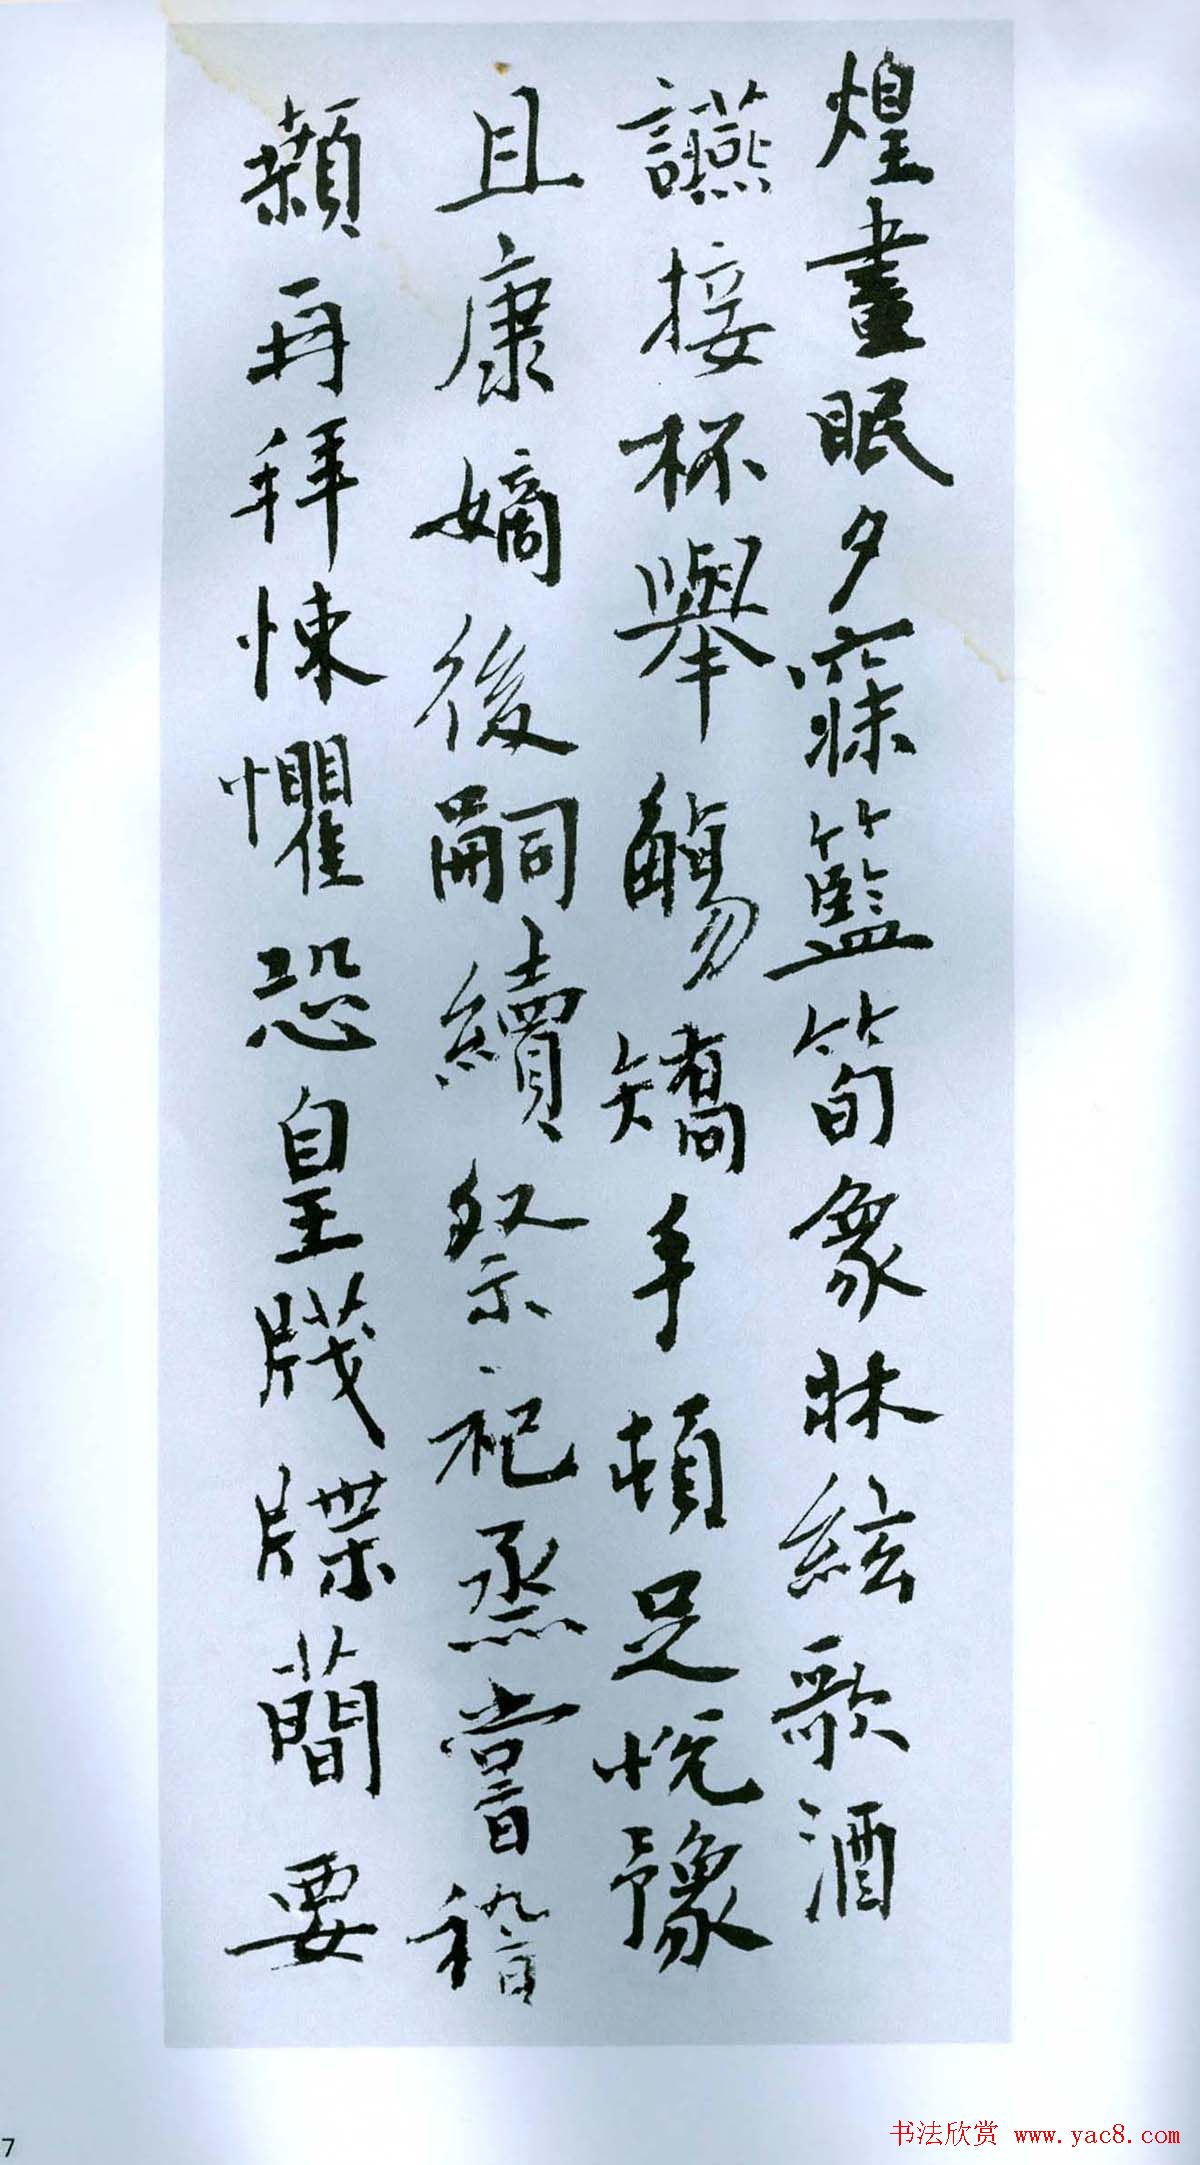 煌晝眠夕寐籃筍象牀絃歌酒
讌接杯舉觴矯手頓足悅豫
且康嫡後嗣續祭祀烝嘗稽
顙再拜悚懼恐皇牋牒簡要
7
书法欣赏 www.yac8.com